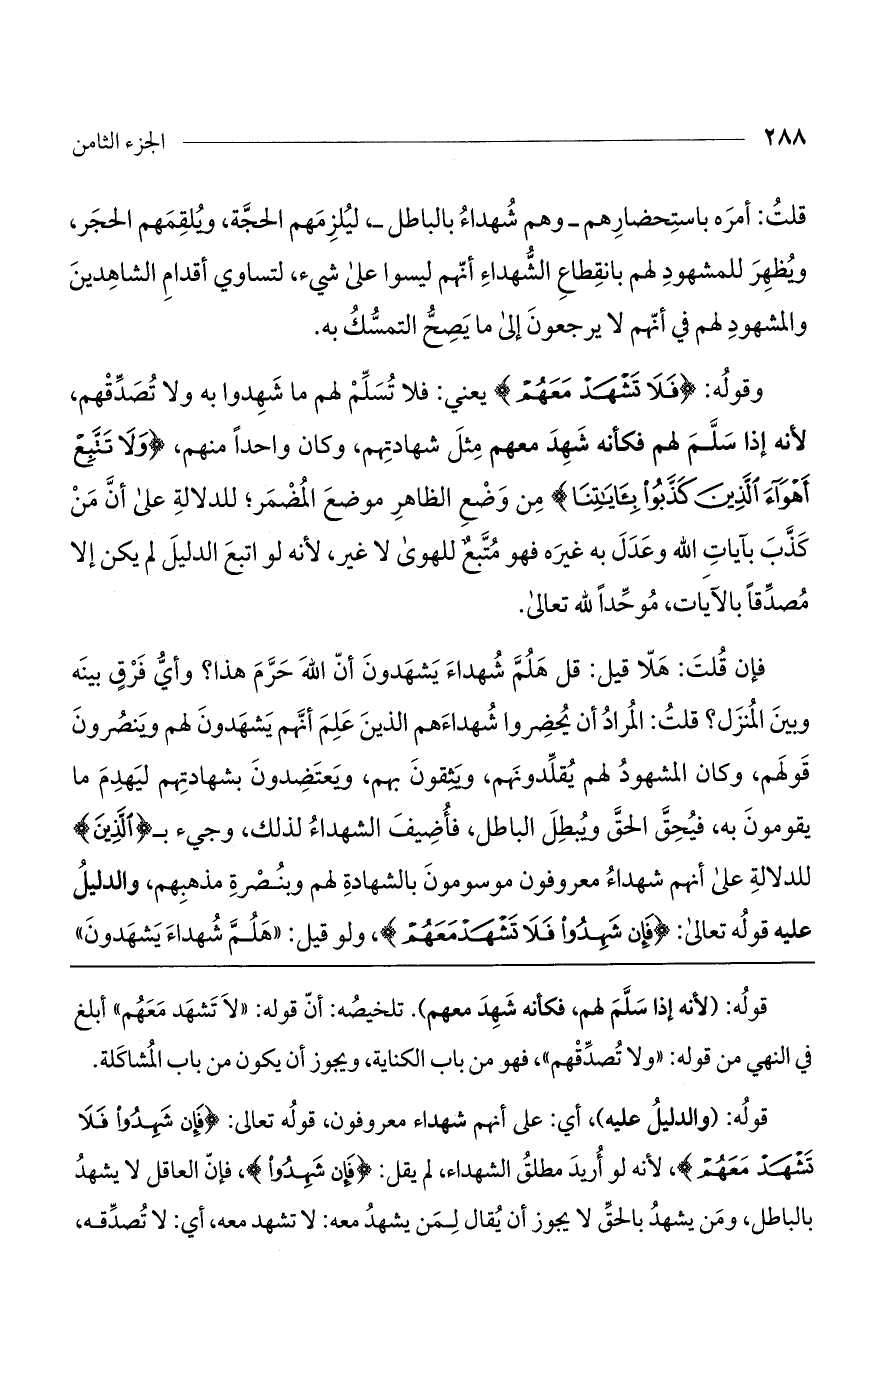 ٢٨٨ الجزء الثامن
قلتُ: أمرَه باستِحضارِهم ـ وهم شُهداءُ بالباطل ـ، ليُلزِمَهم الحجَّة، ويُلقِمَهم الحجَر،
ويُظهِرَ للمشهودِ لهم بانقِطاعِ الشُّهداءِ أنّهم ليسوا علىٰ شيء، لتساوي أقدامِ الشاهِدينَ
والمشهودِ لهم في أنّهم لا يرجعونَ إلىٰ ما يَصِحُّ التمسُّكُ به.
وقولُه: ﴿فَلَا تَشْهَدْ مَعَهُمْ﴾ يعني: فلا تُسَلِّمْ لهم ما شَهِدوا به ولا تُصَدِّقْهم،
لأنه إذا سَلَّمَ لهم فكأنه شَهِدَ معهم مِثلَ شهادتِهم، وكان واحداً منهم، ﴿وَلَا تَتَّبِعْ
أَهْوَآءَ ٱلَّذِينَ كَذَّبُواْ بِـَٔايَٰتِنَا﴾ مِن وَضْعِ الظاهرِ موضعَ المُضْمَر؛ للدلالةِ علىٰ أنَّ مَنْ
كَذَّبَ بآياتِ الله وعَدَلَ به غيرَه فهو مُتَّبعٌ للهوىٰ لا غير، لأنه لو اتبعَ الدليلَ لم يكن إلا
مُصدِّقاً بالآيات، مُوحِّداً لله تعالىٰ.
فإن قُلتَ: هَلّا قيل: قل هَلُمَّ شُهداءَ يَشهَدونَ أنّ اللهَ حَرَّمَ هذا؟ وأيُّ فَرْقٍ بينَه
وبينَ المُنزَل؟ قلتُ: المُرادُ أن يُحضِروا شُهداءَهم الذينَ عَلِمَ أنَّهم يَشهَدونَ لهم ويَنصُرونَ
قَولَهم، وكان المشهودُ لهم يُقلِّدونَهم، ويَثِقونَ بهم، ويَعتَضِدونَ بشهادتِهم ليَهدِمَ ما
يقومونَ به، فيُحِقَّ الحقَّ ويُبطِلَ الباطل، فأُضِيفَ الشهداءُ لذلك، وجيء بـ﴿ٱلَّذِينَ﴾
للدلالةِ علىٰ أنهم شهداءُ معروفون موسومونَ بالشهادةِ لهم وبنُصْرةِ مذهبِهم، والدليلُ
عليه قولُه تعالىٰ: ﴿فَإِن شَهِدُواْ فَلَا تَشْهَدْ مَعَهُمْ﴾، ولو قيل: «هَلُمَّ شُهداءَ يَشهَدونَ»
قولُه: (لأنه إذا سَلَّمَ لهم، فكأنه شَهِدَ معهم). تلخيصُه: أنّ قوله: «لاَ تَشهَد مَعَهُم» أبلغ
في النهي من قوله: «ولا تُصدِّقْهم»، فهو من باب الكناية، ويجوز أن يكون من باب المُشاكَلة.
قولُه: (والدليلُ عليه)، أي: على أنهم شهداء معروفون، قولُه تعالى: ﴿فَإِن شَهِدُواْ فَلَا
تَشْهَدْ مَعَهُمْ﴾، لأنه لو أُريدَ مطلقُ الشهداء، لم يقل: ﴿فَإِن شَهِدُواْ﴾، فإنّ العاقل لا يشهدُ
بالباطل، ومَن يشهدُ بالحقِّ لا يجوز أن يُقال لِـمَن يشهدُ معه: لا تشهد معه، أي: لا تُصدِّقـه،